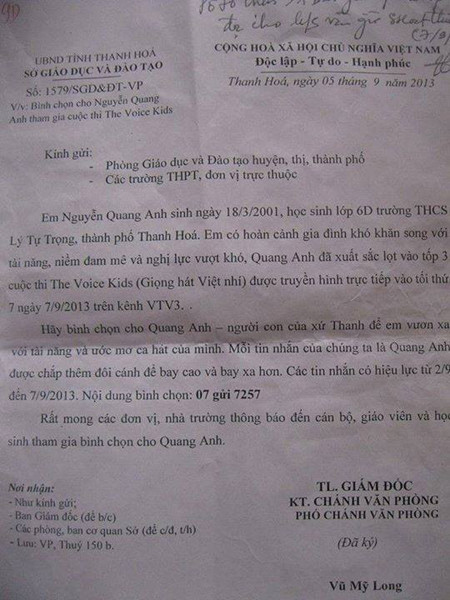 UBND TỈNH THANH HOÁ
SỞ GIÁO DỤC VÀ ĐÀO TẠO
Số: 1579/SGD&ĐT-VP
V/v: Bình chọn cho Nguyễn Quang
Anh tham gia cuộc thi The Voice Kids
CỘNG HOÀ XÃ HỘI CHỦ NGHĨA VIỆT NAM
Độc lập - Tự do - Hạnh phúc
Thanh Hoá, ngày 05 tháng 9 năm 2013
Kính gửi:
- Phòng Giáo dục và Đào tạo huyện, thị, thành phố
- Các trường THPT, đơn vị trực thuộc
Em Nguyễn Quang Anh sinh ngày 18/3/2001, học sinh lớp 6D trường THCS
Lý Tự Trọng, thành phố Thanh Hoá. Em có hoàn cảnh gia đình khó khăn song với
tài năng, niềm đam mê và nghị lực vượt khó, Quang Anh đã xuất sắc lọt vào tốp 3
cuộc thi The Voice Kids (Giọng hát Việt nhí) được truyền hình trực tiếp vào tối thứ
7 ngày 7/9/2013 trên kênh VTV3. .
Hãy bình chọn cho Quang Anh – người con của xứ Thanh để em vươn xa
với tài năng và ước mơ ca hát của mình. Mỗi tin nhắn của chúng ta là Quang Anh
được chắp thêm đôi cánh để bay cao và bay xa hơn. Các tin nhắn có hiệu lực từ 2/9
đến 7/9/2013. Nội dung bình chọn: 07 gửi 7257
Rất mong các đơn vị, nhà trường thông báo đến cán bộ, giáo viên và học
sinh tham gia bình chọn cho Quang Anh.
Nơi nhận:
- Như kính gửi;
- Ban Giám đốc (để b/c)
- Các phòng, ban cơ quan Sở (để c/đ, t/h)
- Lưu: VP, Thuý 150 b.
TL. GIÁM ĐỐC
KT. CHÁNH VĂN PHÒNG
PHÓ CHÁNH VĂN PHÒNG
(Đã ký)
Vũ Mỹ Long